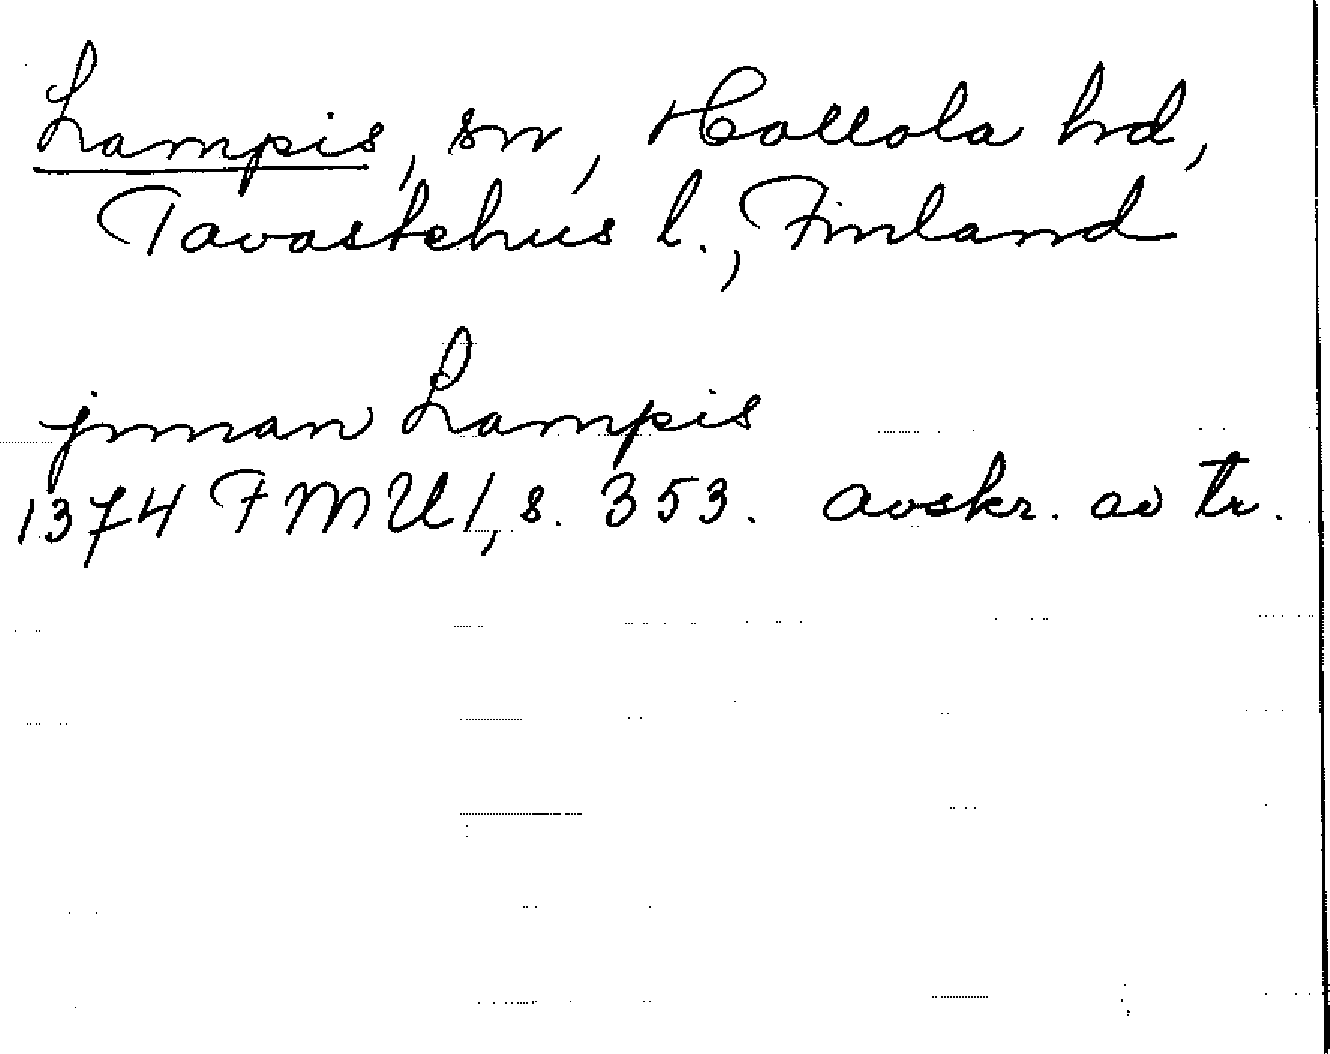 Lampis, sn, Hollola hd,
Tavastehus l., Finland
jnman Lampis
1374 FMU 1, s. 353. avskr. av tr.